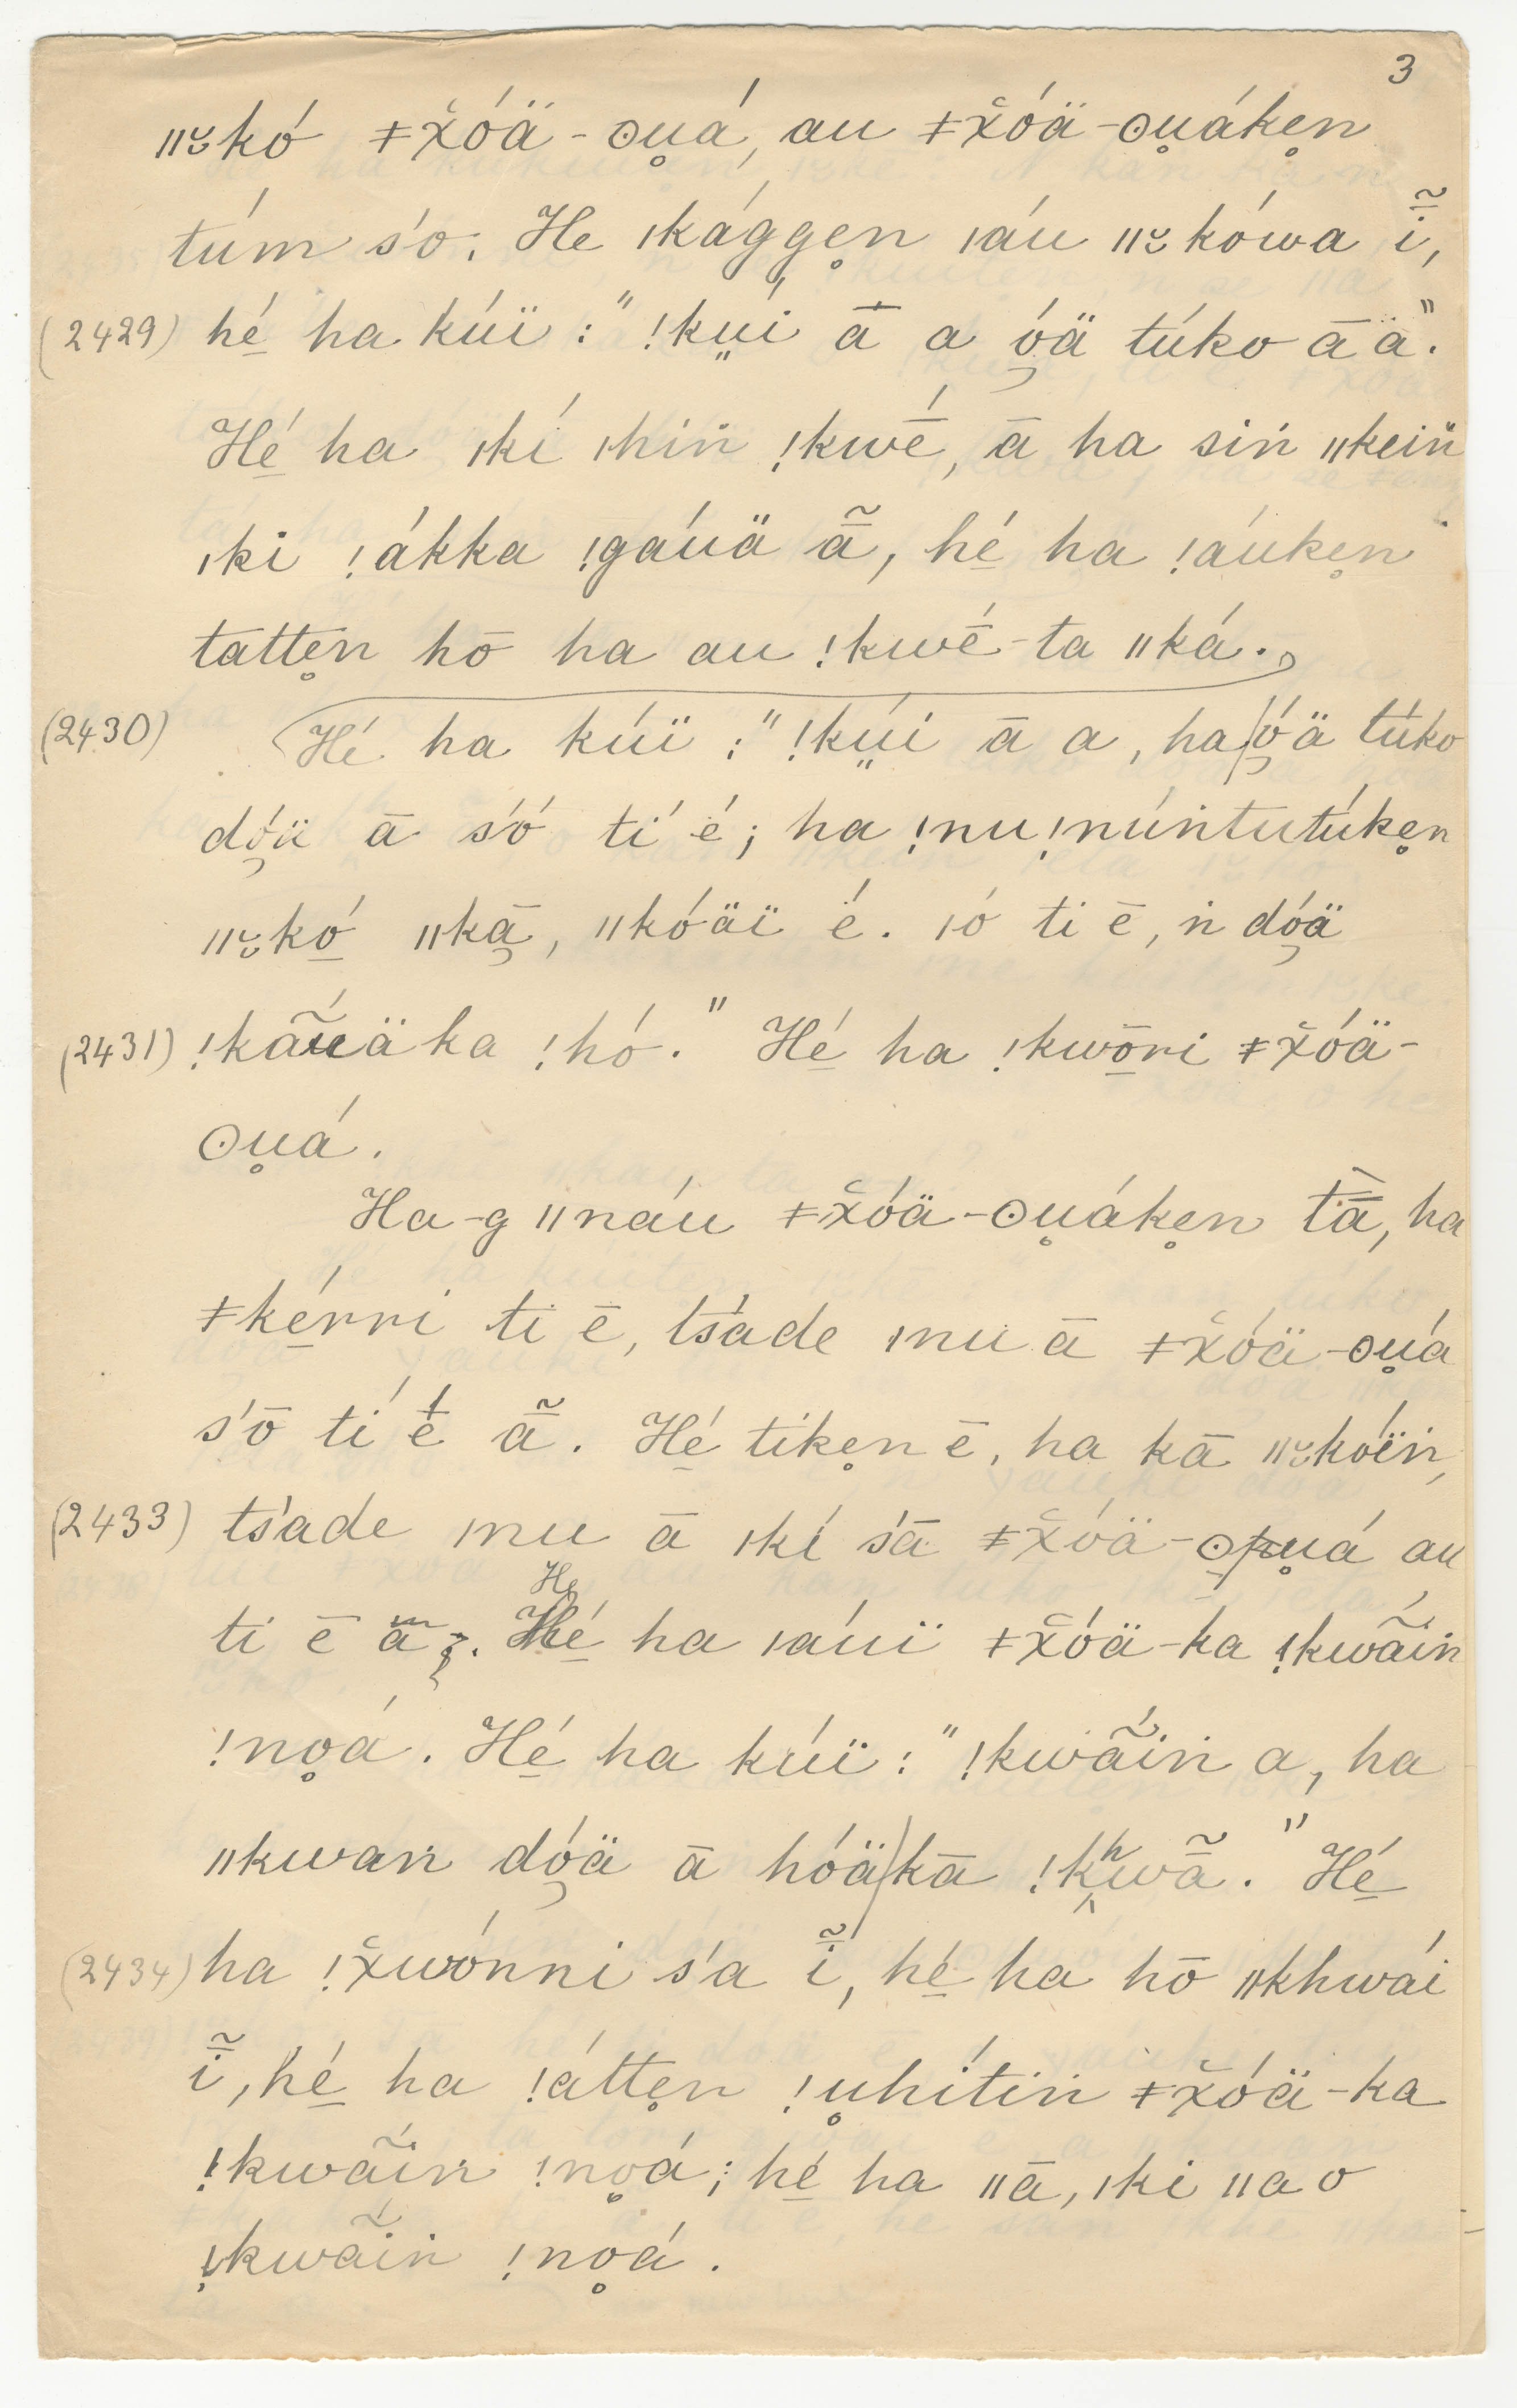 3
ǁ꞉kó ǂx̌óä-ʘu̥á, au ǂx̌óä-ʘu̥áke̥n
túm s'o. He ǀkágge̥n ǀáu ǁ꞉kówa ĩ̄,
(2429) hé̱ ha kúï : "!kṳí ā a ó̜ä túko āä".
Hé̱ ha ǀkí ǀhiṅ !kwḗ, ā ha siṅ ǁkeiṅ
ǀki !ákka !gáuä ã̄, hé̱ ha !áuke̥n
tatte̥n hō ha au !kwḗ-ta ǁká.
(2430) Hé ha kúï : "!kṳ́i ā a, ha ó̜ä túko
dó̜ä ā s'ó tí é; ha !nu!núntutúke̥n
ǁ꞉kó̱ ǁkā̜, ǁkóäï é. ǀó ti ē, ṅ dó̜ä
(2431) !kã́uä ka !hó." Hé̱ ha !kwō̱ri ǂx̌óä-
ʘu̥á.
Ha-g ǁnáu ǂx̌óä-ʘu̥áke̥n tā̀, ha
ǂké̱rri ti ē, ts'ade ǀnu ā ǂx̌óä-ʘu̥á
s'ō tí é ã̄. Hé̱ tíke̥n ē, ha kā ǁ꞉kóïṅ,
(2433) ts'ade ǀnu ā ǀkí s'ā ǂx̌óä-ʘu̥á au
ti ē ã̄. He
Hé̱ ha ǀáuï ǂx̌óä-ka !kwã́iṅ
!no̥á. Hé̱ ha kúï : "!kwã́iṅ a, ha
ǁkwaṅ dó̜ä ā hóä kā !kʰwã̄." Hé̱
(2434) ha !x̌wónni s'a ĩ̄, hé̱ ha hō ǁkhwái
ĩ̄, hé̱ ha !átte̥n !u̥hítiṅ ǂx̌óä-ka
!kwã́iṅ !no̥á; hé̱ ha ǁā, ǀki ǁa o
!kwã́iṅ !no̥á.